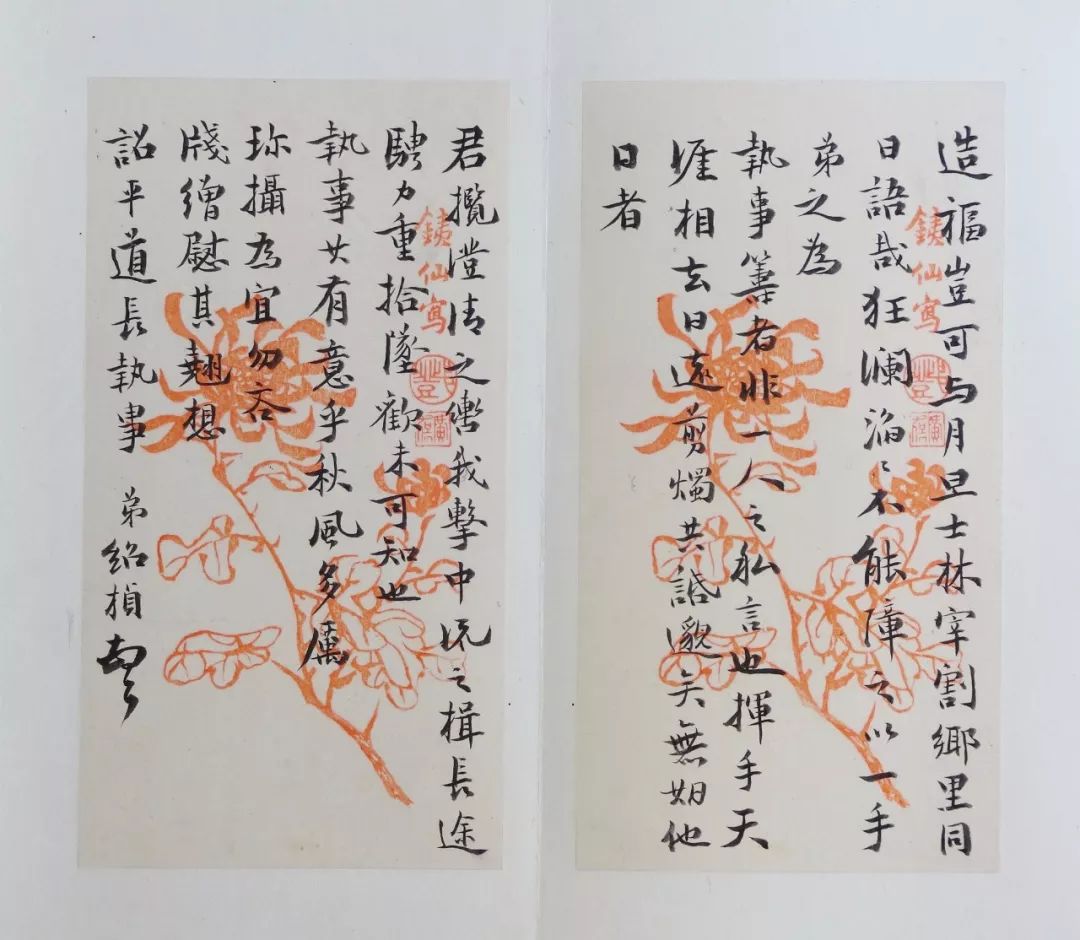 造福豈可与月旦士林宰割鄉里同
日語哉狂瀾滔〻不能障之以一手
弟之為
執事籌者非一人之私言也揮手天
涯相去日遠剪燭共語邈矣無如他
日者
銕仙寫
君攬澄清之轡我擊中流之楫長途
騁力重拾墜歡未可知也
執事其有意乎秋風多厲
珍攝為宜勿吝
牋繒慰其翹想
詔平道長執事 弟紹楨頓
銕仙寫